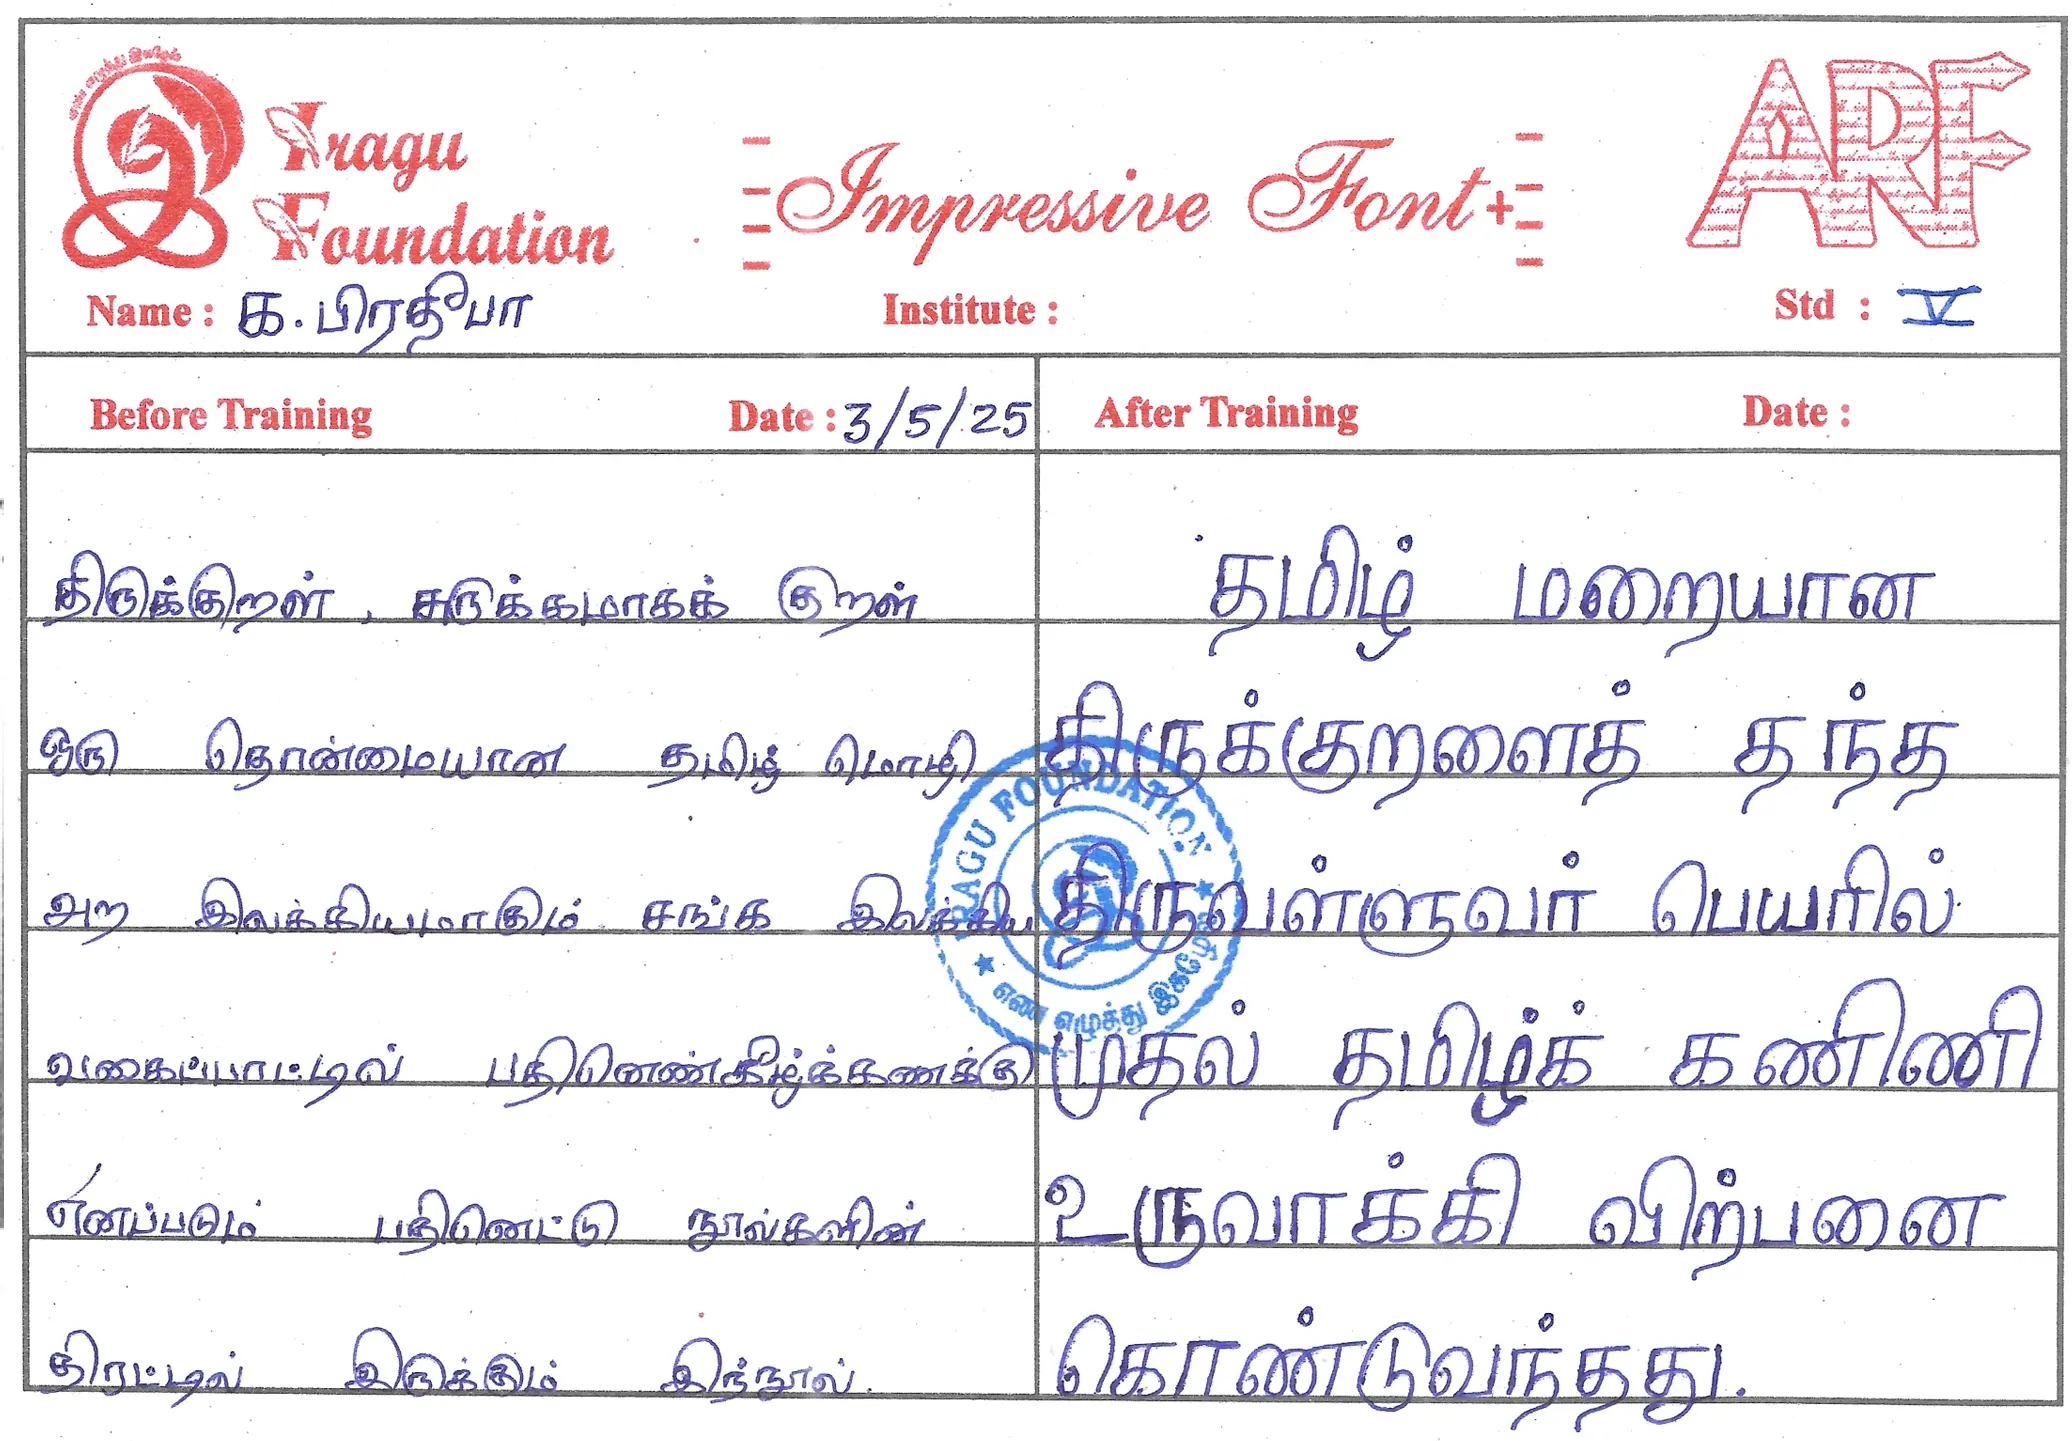 Iragu
Foundation
Impressive Font+
ARF
Name : க. பிரதீபா
Institute :
Std : V
Before Training Date : 3/5/25
திருக்குறள், சுருக்கமாகக் குறள்
ஒரு தொன்மையான தமிழ் மொழி
அற இலக்கியமாகும் சங்க இலக்கிய
வகைப்பாட்டில் பதினெண்கீழ்க்கணக்கு
எனப்படும் பதினெட்டு நூல்களின்
திரட்டில் இருக்கும் இந்நூல்.
After Training Date :
தமிழ் மறையான
திருக்குறளைத் தந்த
திருவள்ளுவர் பெயரில்
முதல் தமிழ்க் கணிணி
உருவாக்கி விற்பனை
கொண்டுவந்தது.
IRAGU FOUNDATION
எண எழுத்து இகழேல்